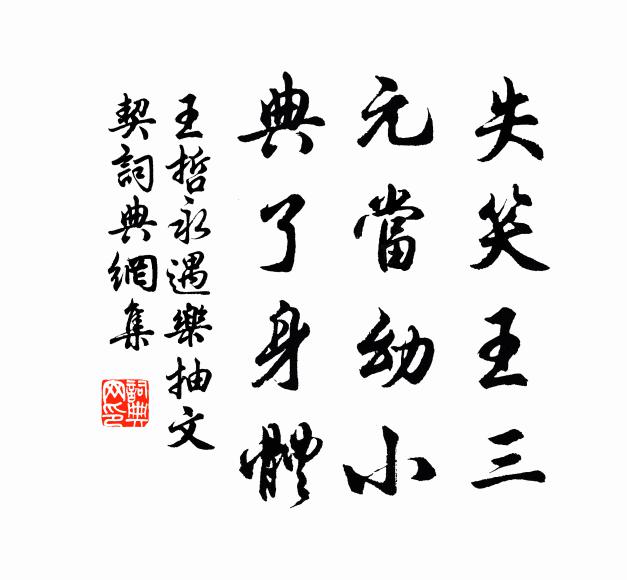 失笑王三
元當幼小
典了身體
王哲永遇樂抽文
契詞典網集
詞典网印